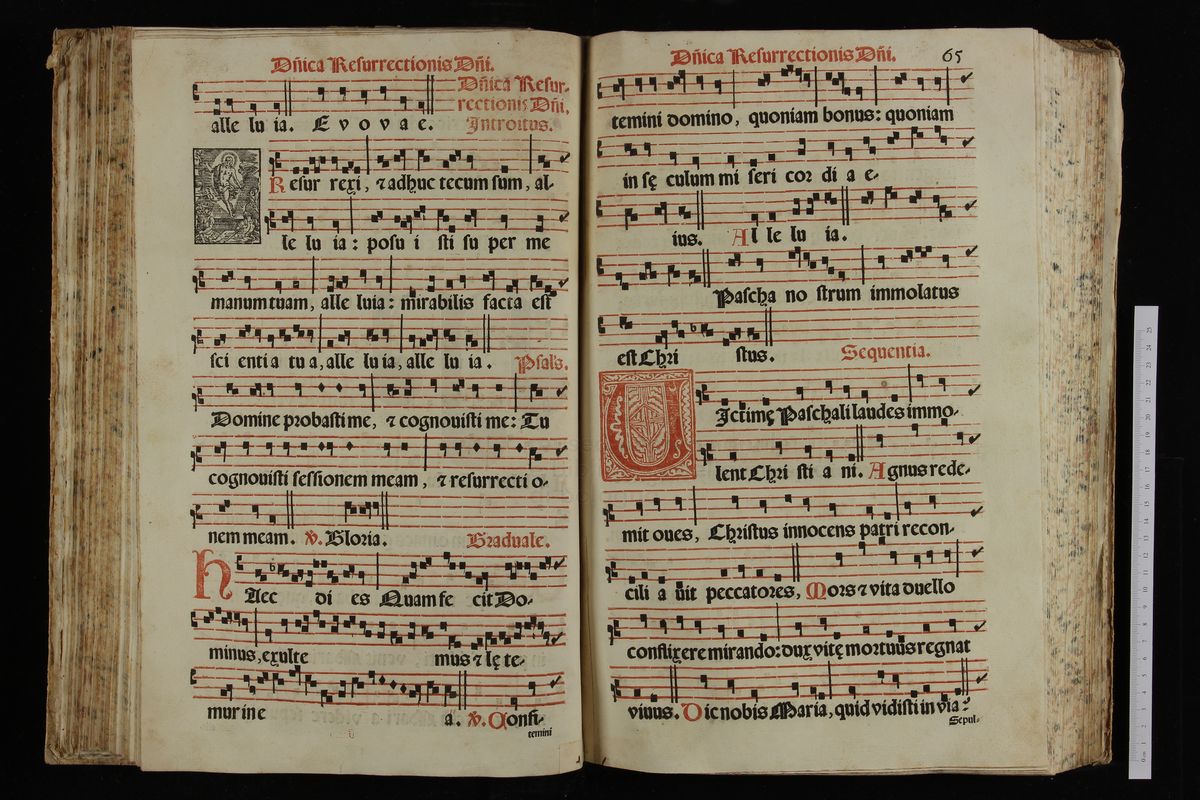 Dñica Resurrectionis Dñi.
alle lu ia. E v o v a e.
Dñica Resur-
rectionis Dñi,
Introitus.
Resur rexi, ⁊ adhuc tecum sum, al-
le lu ia: posu i sti su per me
manum tuam, alle luia: mirabilis facta est
sci enti a tu a, alle lu ia, alle lu ia. Psal's.
Domine probasti me, ⁊ cognouisti me: Tu
cognouisti sessionem meam, ⁊ resurrecti o-
nem meam. ℣. Gloria. Graduale.
HAec di es Quam fe cit Do-
minus, exulte mus ⁊ lę te-
mur in e a. ℣. Confi-
temini
Dñica Resurrectionis Dñi. 65
temini domino, quoniam bonus: quoniam
in sę culum mi seri cor di a e-
ius. Al le lu ia.
Pascha no strum immolatus
est Chri stus. Sequentia.
VIctimę Paschali laudes immo-
lent Chri sti a ni. Agnus rede-
mit oues, Christus innocens patri recon-
cili a uit peccatores, Mors ⁊ vita duello
conflixere mirando: dux vitę mortuus regnat
viuus. Dic nobis Maria, quid vidisti in via?
Sepul-